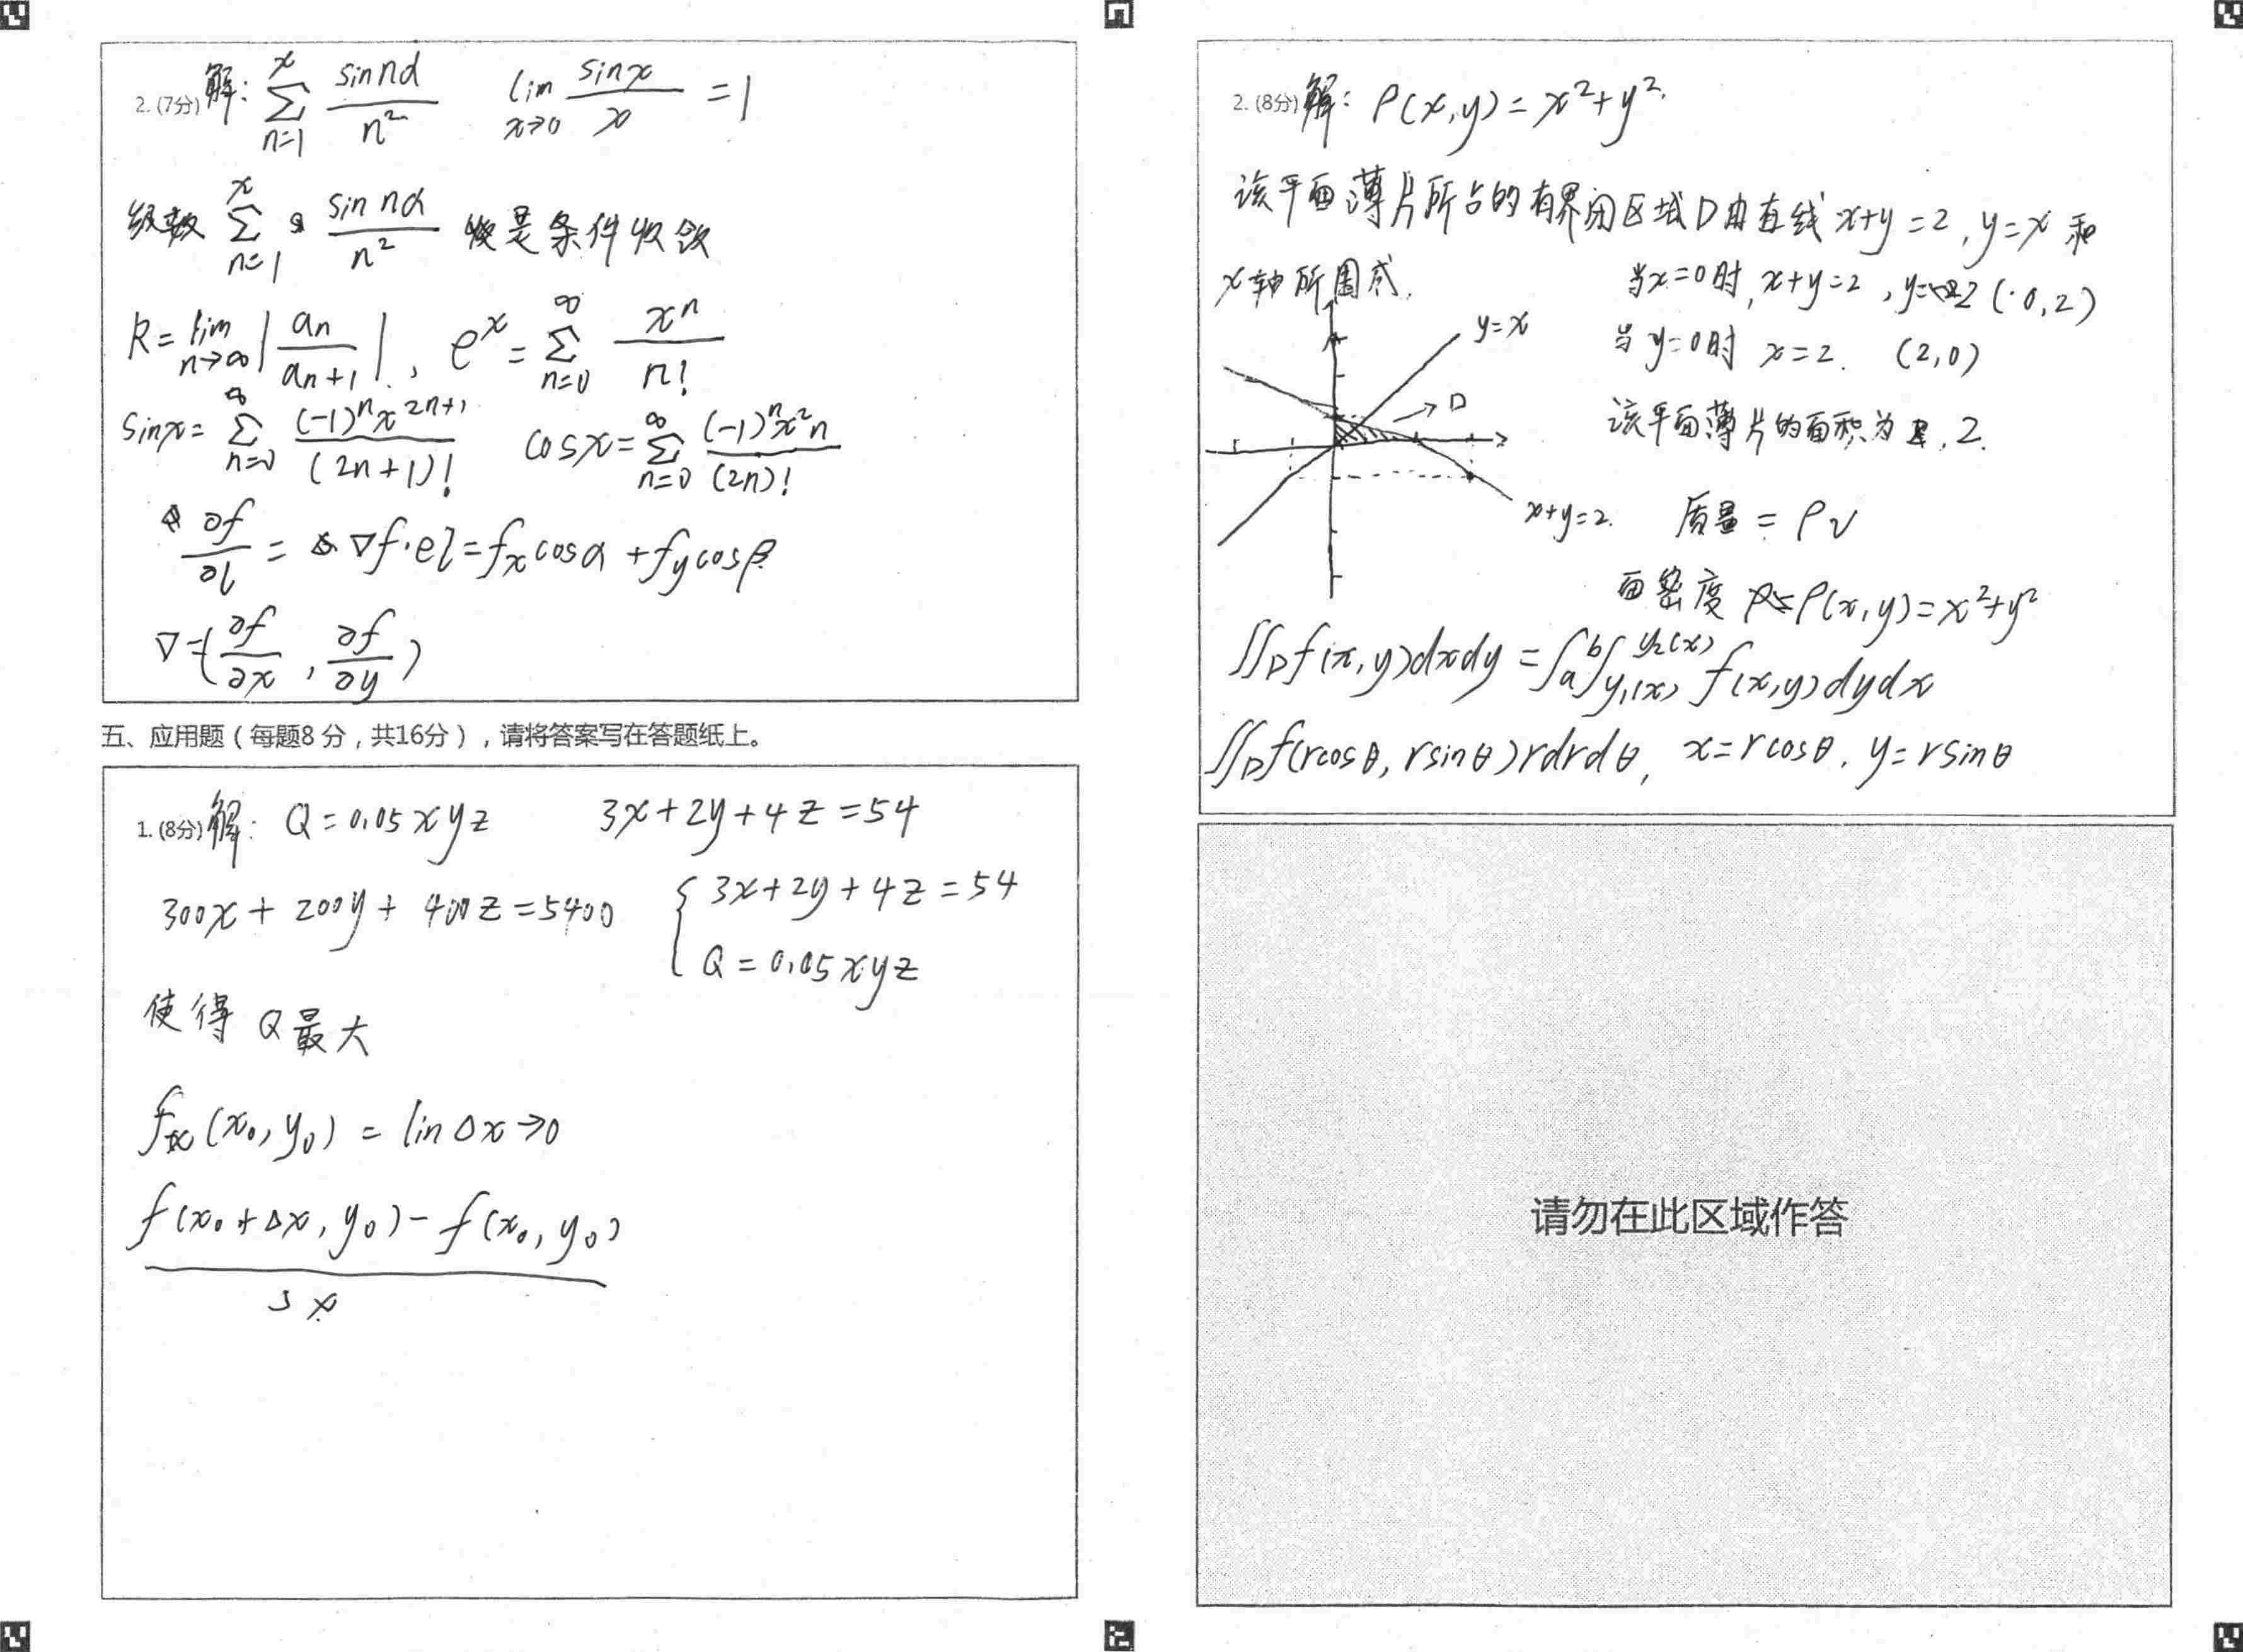 2. (7分) 解: ∑_{n=1}^{x} sin nα / n²    lim_{x→0} sin x / x = 1
级数 ∑_{n=1}^{x} sin nα / n² 是条件收敛
R = lim_{n→∞} |a_n / a_{n+1}|, e^x = ∑_{n=0}^{∞} x^n / n!
sin x = ∑_{n=0}^{∞} (-1)^n x^{2n+1} / (2n+1)!    cos x = ∑_{n=0}^{∞} (-1)^n x^2 n / (2n)!
∂f/∂l = ∇f·el = f_x cosα + f_y cosβ
∇ = (∂f/∂x, ∂f/∂y)
五、应用题(每题8 分,共16分),请将答案写在答题纸上。
1. (8分) 解: Q = 0.05xyz    3x+2y+4z=54
300x + 200y + 400z = 5400    { 3x+2y+4z=54
Q = 0.05xyz
使得 Q最大
f_x(x₀, y₀) = lin Δx→0
f(x₀+Δx, y₀) - f(x₀, y₀)
x
2. (8分) 解: ρ(x,y) = x²+y².
该平面薄片所占的有界闭区域D由直线 x+y=2, y=x 和
x轴所围成.
当x=0时, x+y=2, y=2 (0,2)
y=x
当y=0时 x=2. (2,0)
D
该平面薄片的面积为 2.
x+y=2.
质量 = ρv
面密度 ρ(x,y)=x²+y²
∬_D f(x,y)dxdy = ∫_a^b ∫_{y₁(x)}^{y₂(x)} f(x,y)dydx
∬_D f(rcosθ, rsinθ)rdrdθ, x=rcosθ, y=rsinθ
请勿在此区域作答